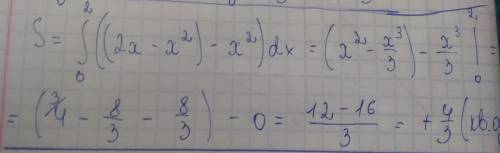 S = ∫₀² ((2x - x²) - x²) dx = (x² - x³/3) - x³/3 |₀² =
= (4 - 8/3 - 8/3) - 0 = (12 - 16)/3 = + 4/3 (кв.